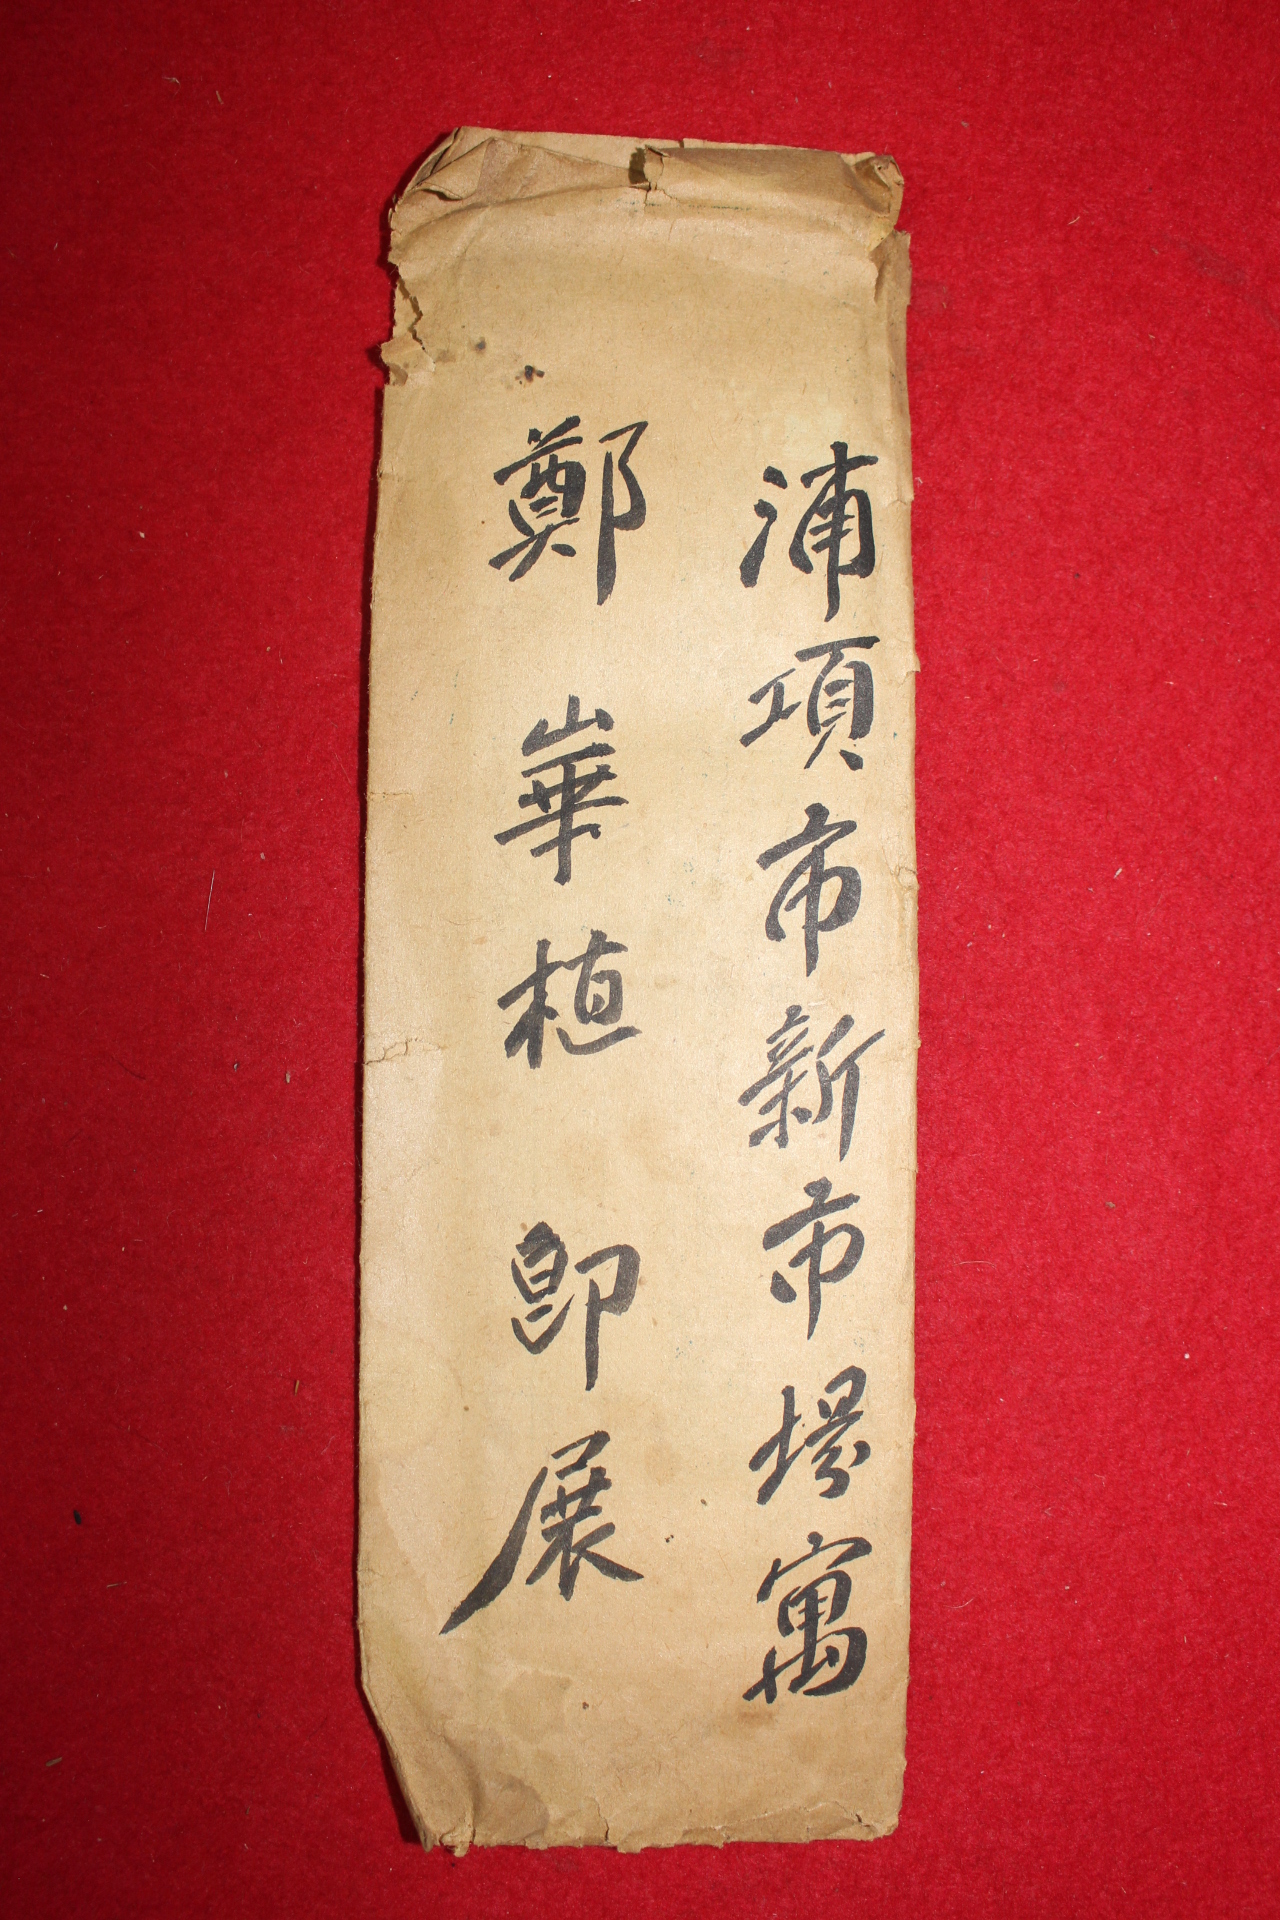 浦項市新市場寓
鄭崋植 卽展